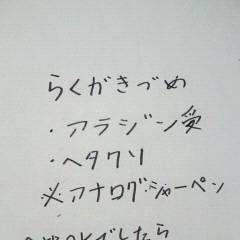 らくがきづめ
・アラジン受
・ヘタクソ
※アナログ・シャーペン
でしたら